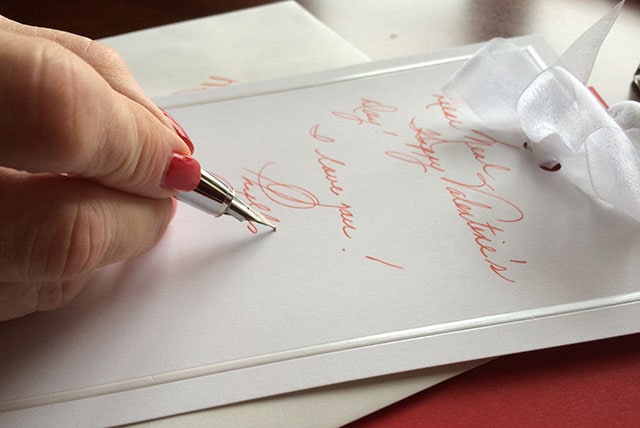 Dear
Happy Valentine's
Day!
I love you!